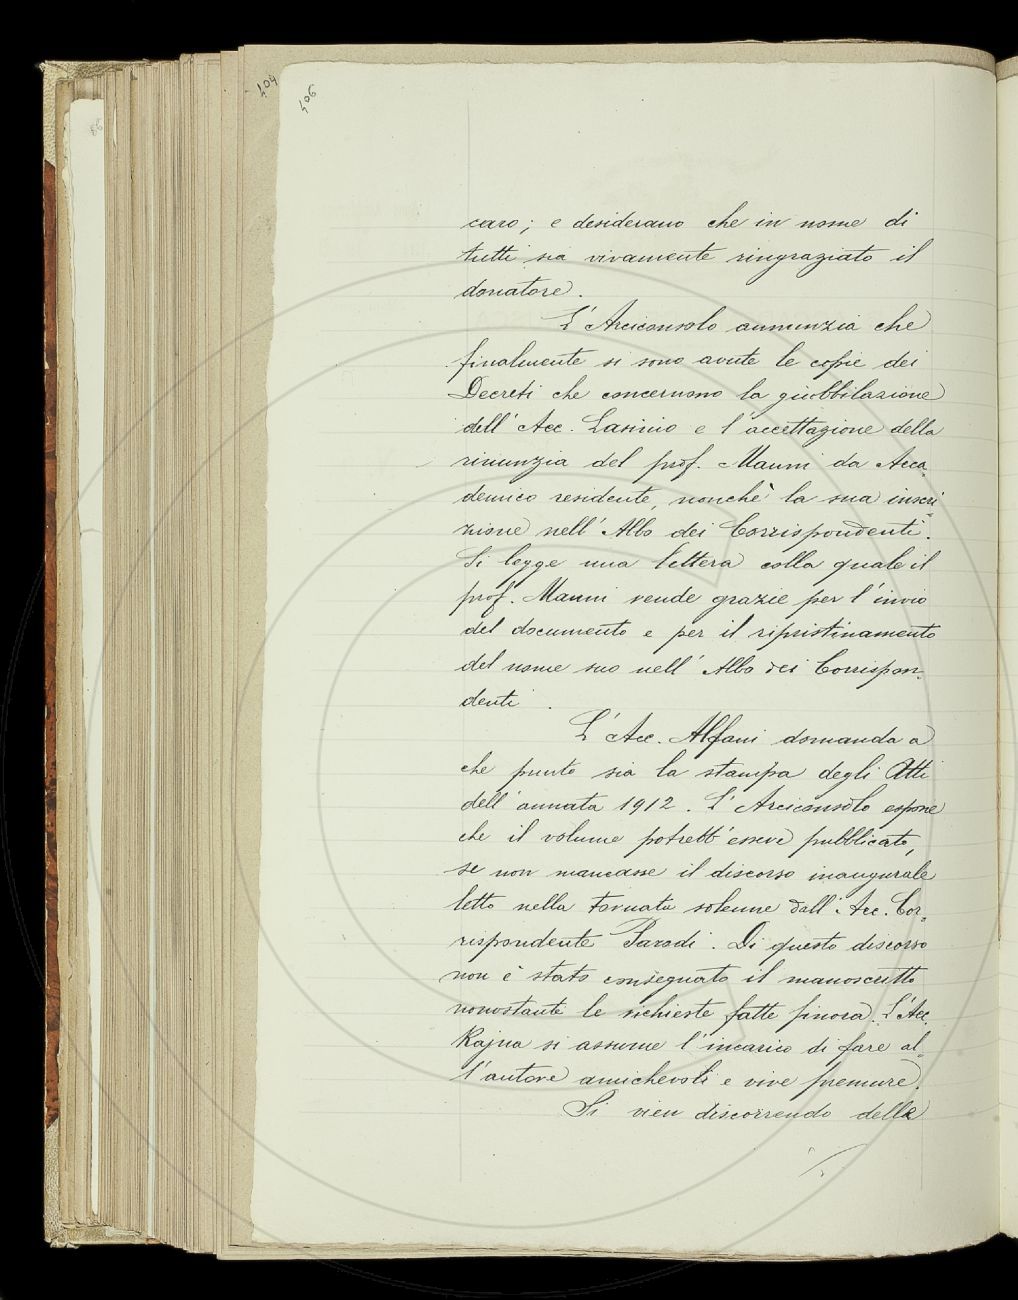 404
406
caro; e desiderano che in nome di
tutti sia vivamente ringraziato il
donatore.
L'Arciconsolo annunzia che
finalmente si sono avute le copie dei
Decreti che concernono la giubbilazione
dell'Acc. Lasinio e l'accettazione della
rinunzia del prof. Manni da Acca-
demico residente, nonchè la sua inscri-
zione nell'Albo dei Corrispondenti.
Si legge una lettera colla quale il
prof. Manni rende grazie per l'invio
del documento e per il ripristinamento
del nome suo nell'Albo dei Corrispon-
denti.
L'Acc. Alfani domanda a
che punto sia la stampa degli Atti
dell'annata 1912. L'Arciconsolo espone
che il volume potrebb'essere pubblicato,
se non mancasse il discorso inaugurale
letto nella tornata solenne dall'Acc. Cor-
rispondente Parodi. Di questo discorso
non è stato consegnato il manoscritto
nonostante le richieste fatte finora. L'Acc.
Rajna si assume l'incarico di fare al-
l'autore amichevoli e vive premure.
Si vien discorrendo della